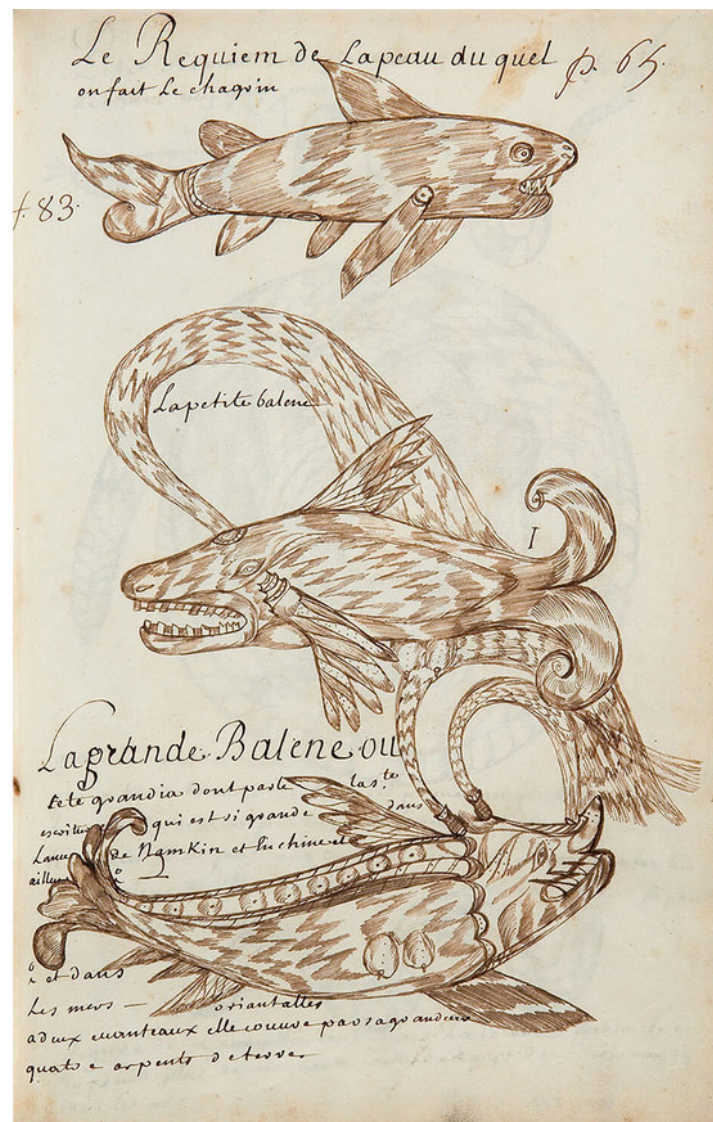 Le Requiem de Lapeau du quel p. 65.
on fait Le chagrin
f. 83.
Lapetite balene
I
Lagrande Balene ou
cete grandia dont parle las.te
escriture qui est si grande dans
Lamer de Namkin et Enchine et
ailleurs
et dans
Les mers — oriantalles
adeux euanteaux elle couure parsagrandeur
quatre arpents deterre